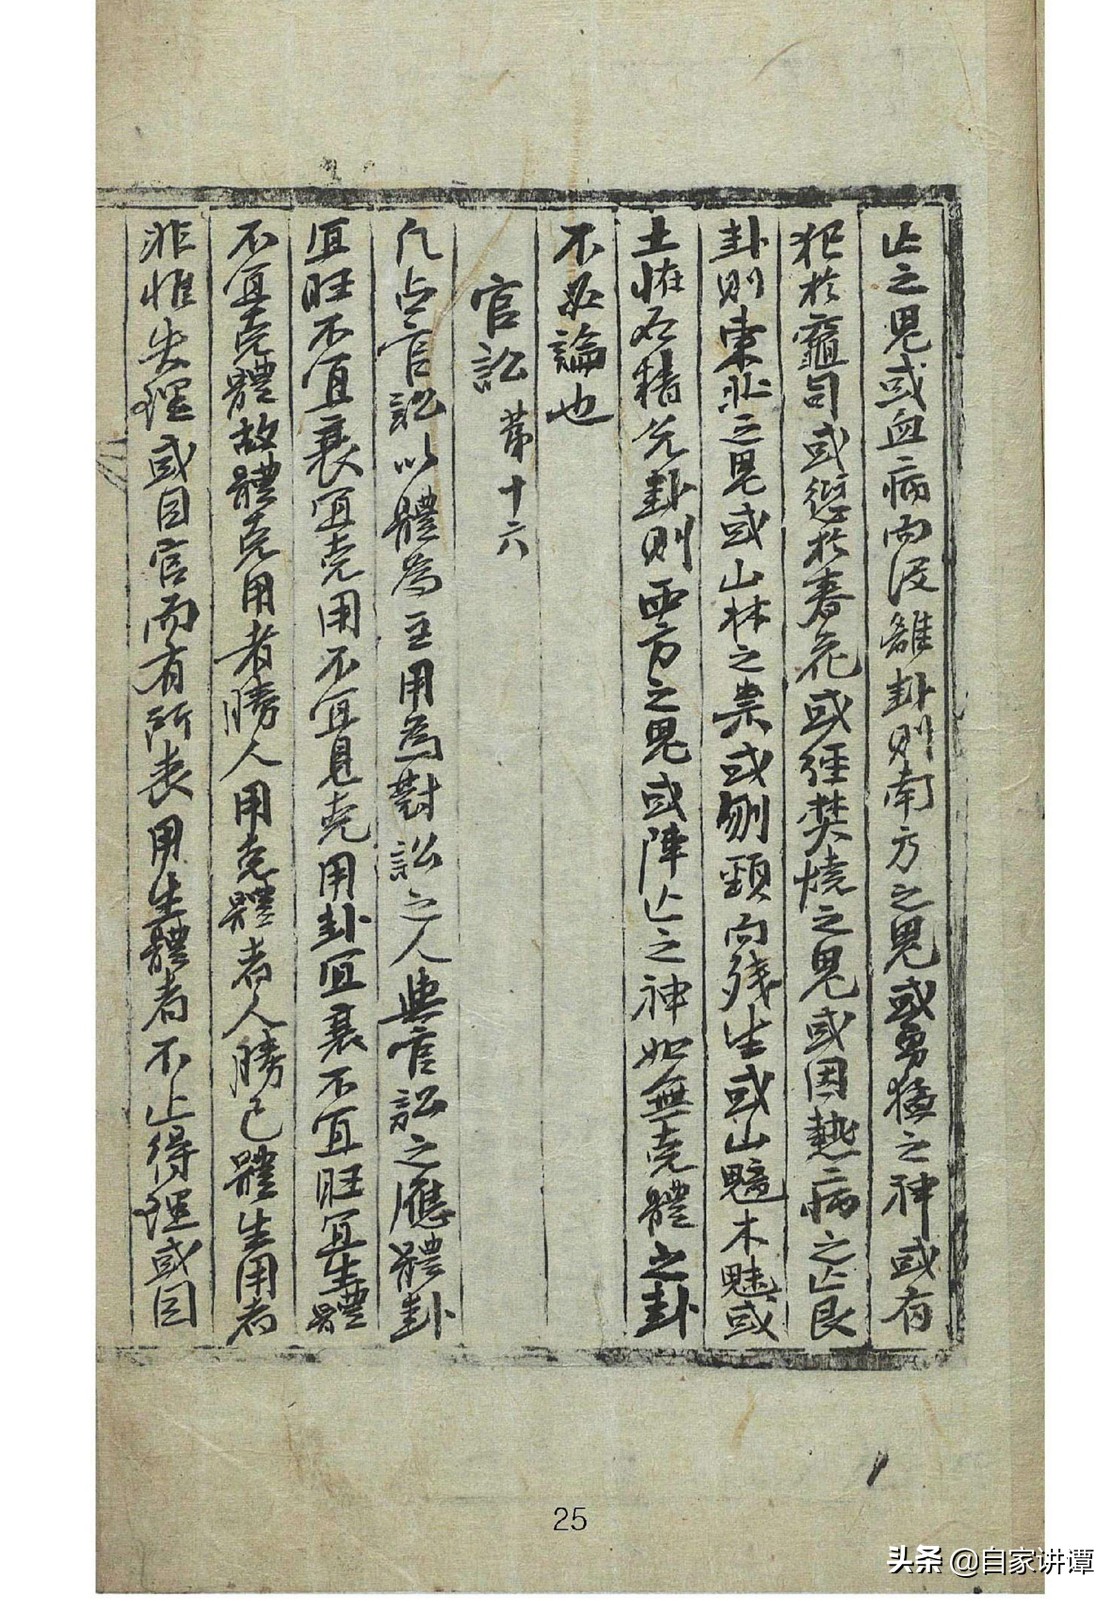 亡之鬼或血病而沒離卦則南方之鬼或勇猛之神或有
犯於竈司或愆於香花或經焚燒之鬼或因熱病之亡艮
卦則東北之鬼或山林之祟或刎頸向殘生或山魈木魅或
土怪石精兌卦則西方之鬼或陣亡之神如無克體之卦
不必論也
官訟第十六
凡占官訟以體為主用為對訟之人與官訟之應體卦
宜旺不宜衰宜克用不宜見克用卦宜衰不宜旺宜生體
不宜克體故體克用者勝人用克體者人勝己體生用者
非惟失理或因官而有所喪用生體者不止得理或因
25
头条 @自家讲谭